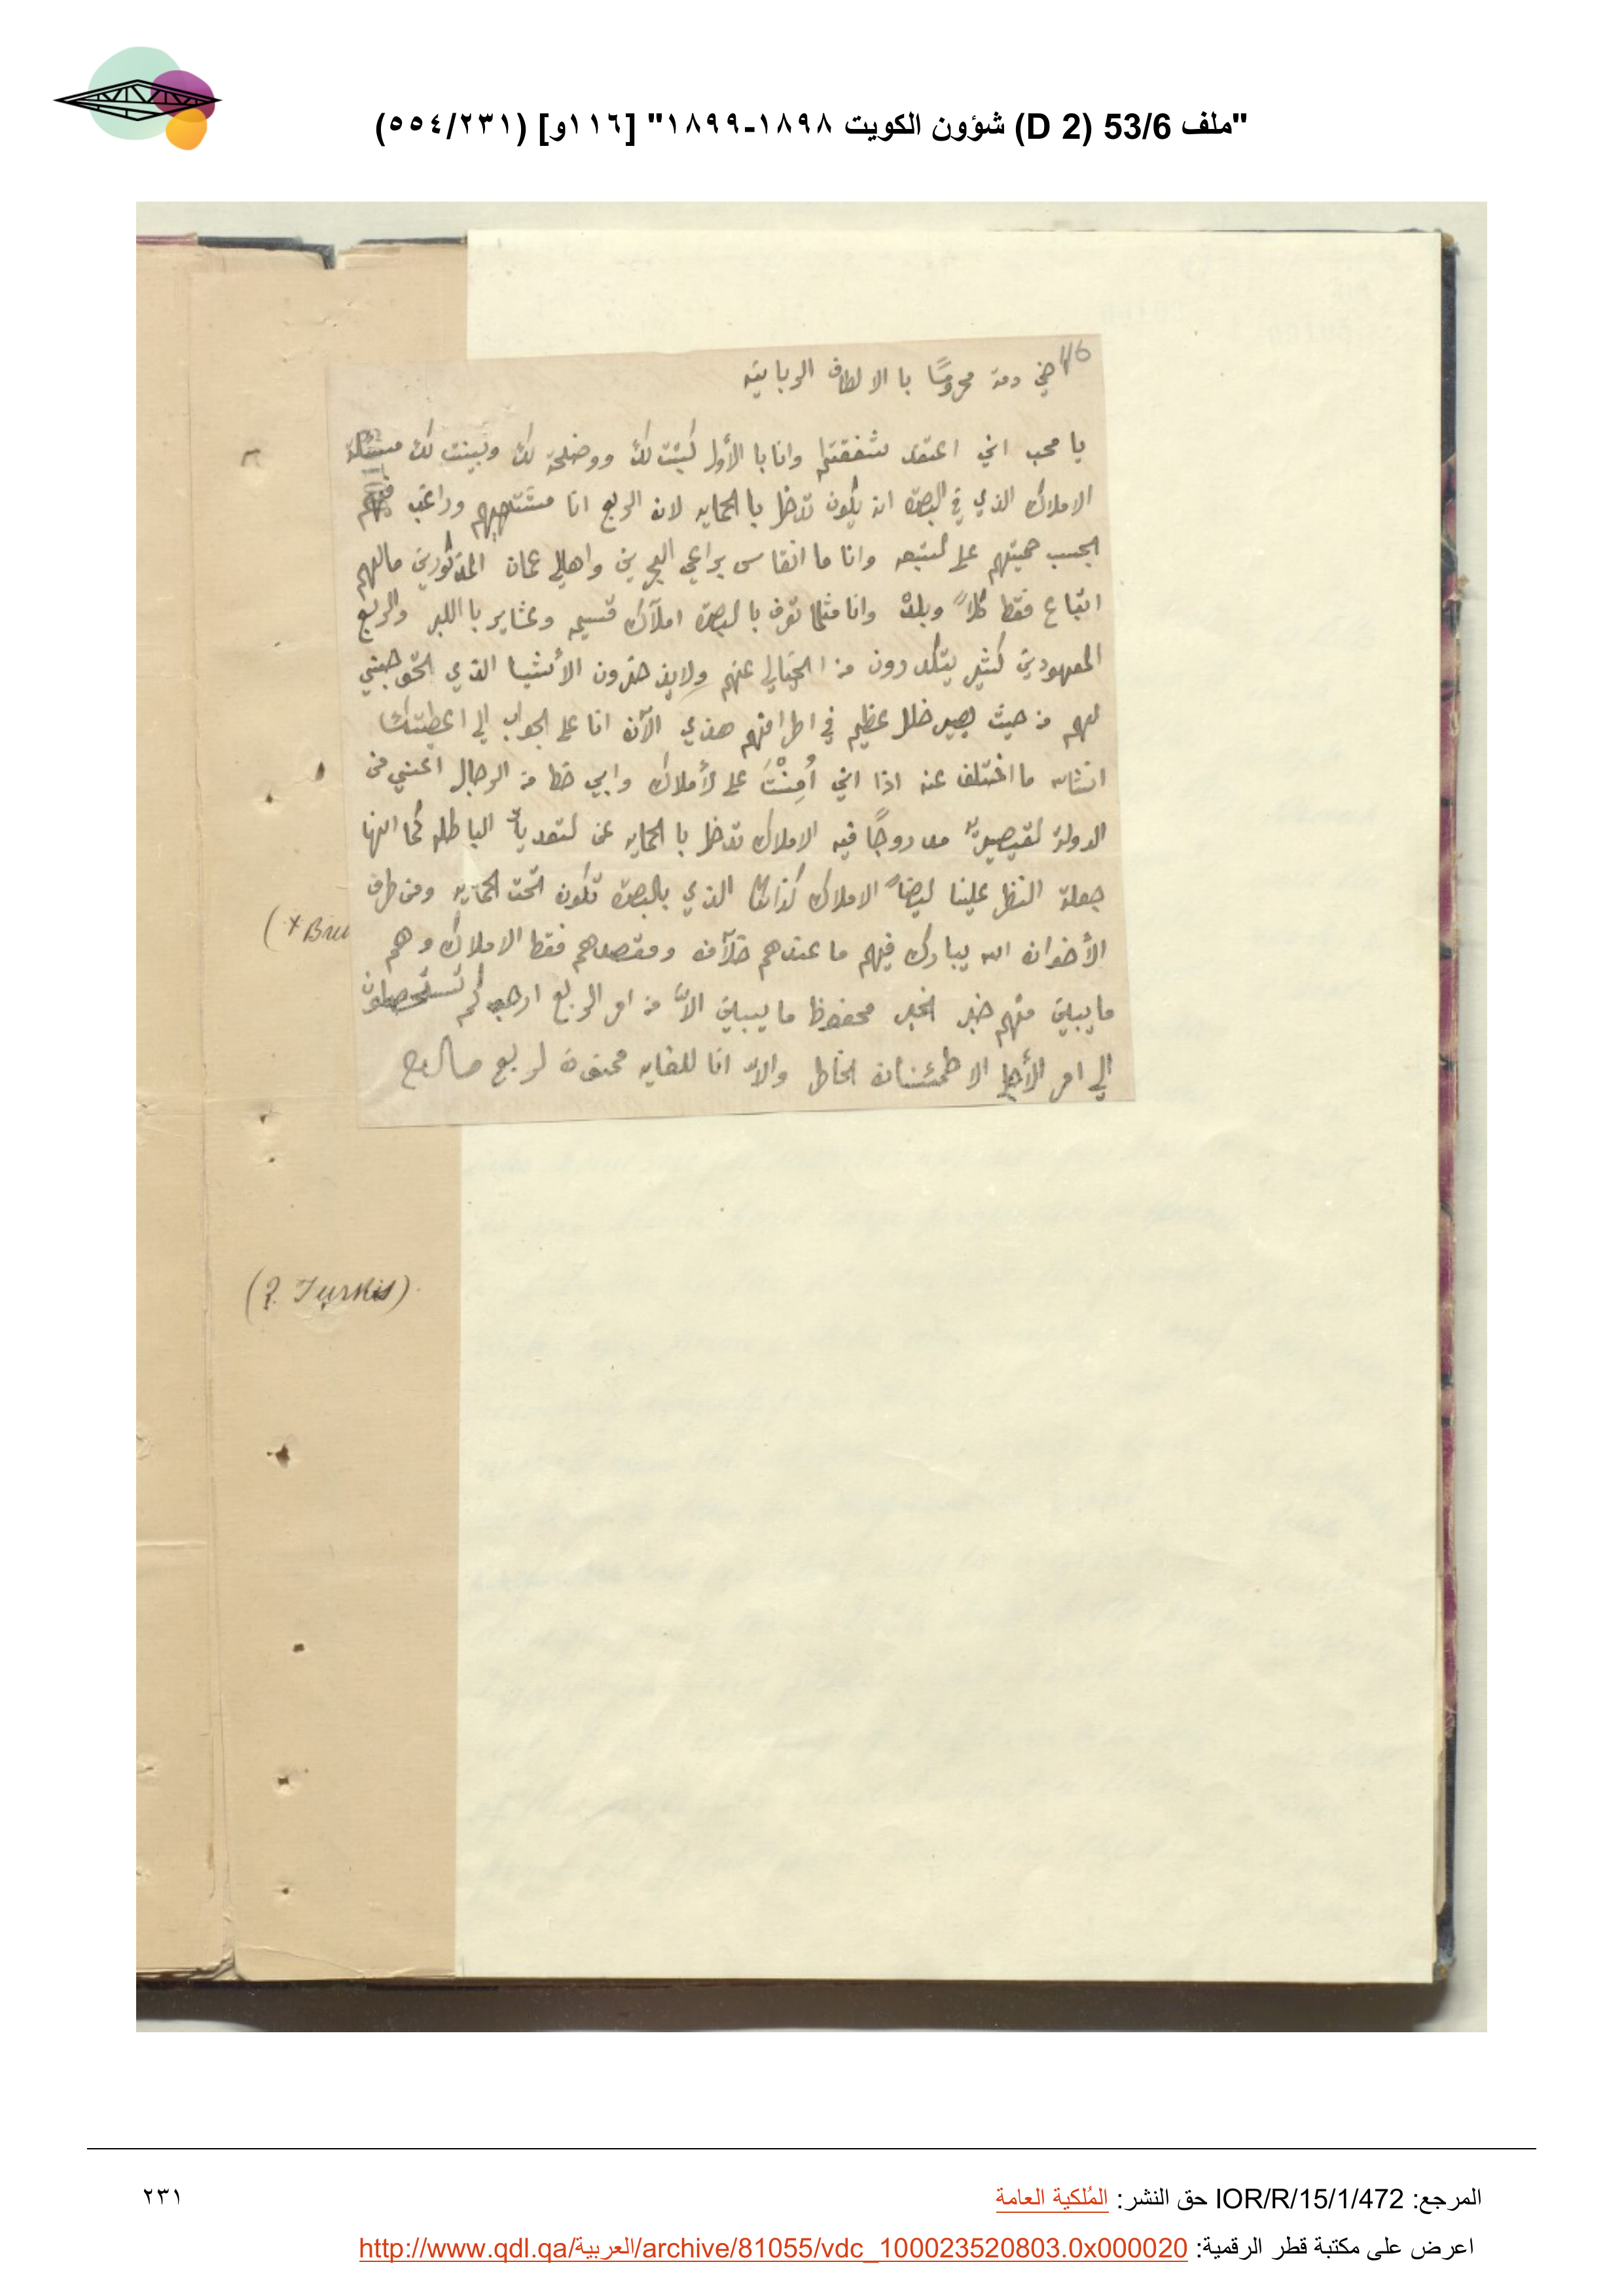 "ملف 53/6 (D 2) شؤون الكويت ١٨٩٨-١٨٩٩" [١١٦و] (٥٥٤/٢٣١)
116
دمت محروسًا با الالطاف الربانيه
يا محب اني اعتقد بشفقتكم وانا با الأول كتبت لك ووضحة لك وبينت لك مسئلة
الاملاك الذي في البصره ان يكون تدخل با الحمايه لان الربع انا مشتهيهم وراغب فيهم
بحسب حميتهم على وانا ما انقاس براعي البحرين واهالي عمان المذكورين مالهم
اتباع فقط كلاً وبلده وانا مثلما تعرف با لبصرة املآك قسيمه وعشاير با اللبر والربع
المعهودين كثير يتكدرون من عنهم الأشيا الذي
لهم من حيث يصير خلل عظيم في اطرافهم هذي الآن انا على الجواب الي اعطيتك
انشاء ما اختلف عنه اذا اني أُمِنْتَ على لأملاك وابي خط من الرجال اعني من
الدولة مدروجًا فيه الاملاك تدخل با الحمايه عن الباطله كما انها
جعلة النظر علينا ايضاً الاملاك الذي بالبصره تكون تحت الحمايه ومن طرف
الأخوان الله يبارك فيهم ما عندهم خلآف ومقصدهم فقط الاملاك وهم
ما يبين منهم خبر الخبر محفوظ ما يبين الاّ من امر الربع
الي امر الأجل الاطمئنان الخاطر والاّ انا للغايه ممنون لربع
(* Bru
(? Turkis)
المرجع: IOR/R/15/1/472 حق النشر: المُلكية العامة
٢٣١
اعرض على مكتبة قطر الرقمية: http://www.qdl.qa/العربية/archive/81055/vdc_100023520803.0x000020